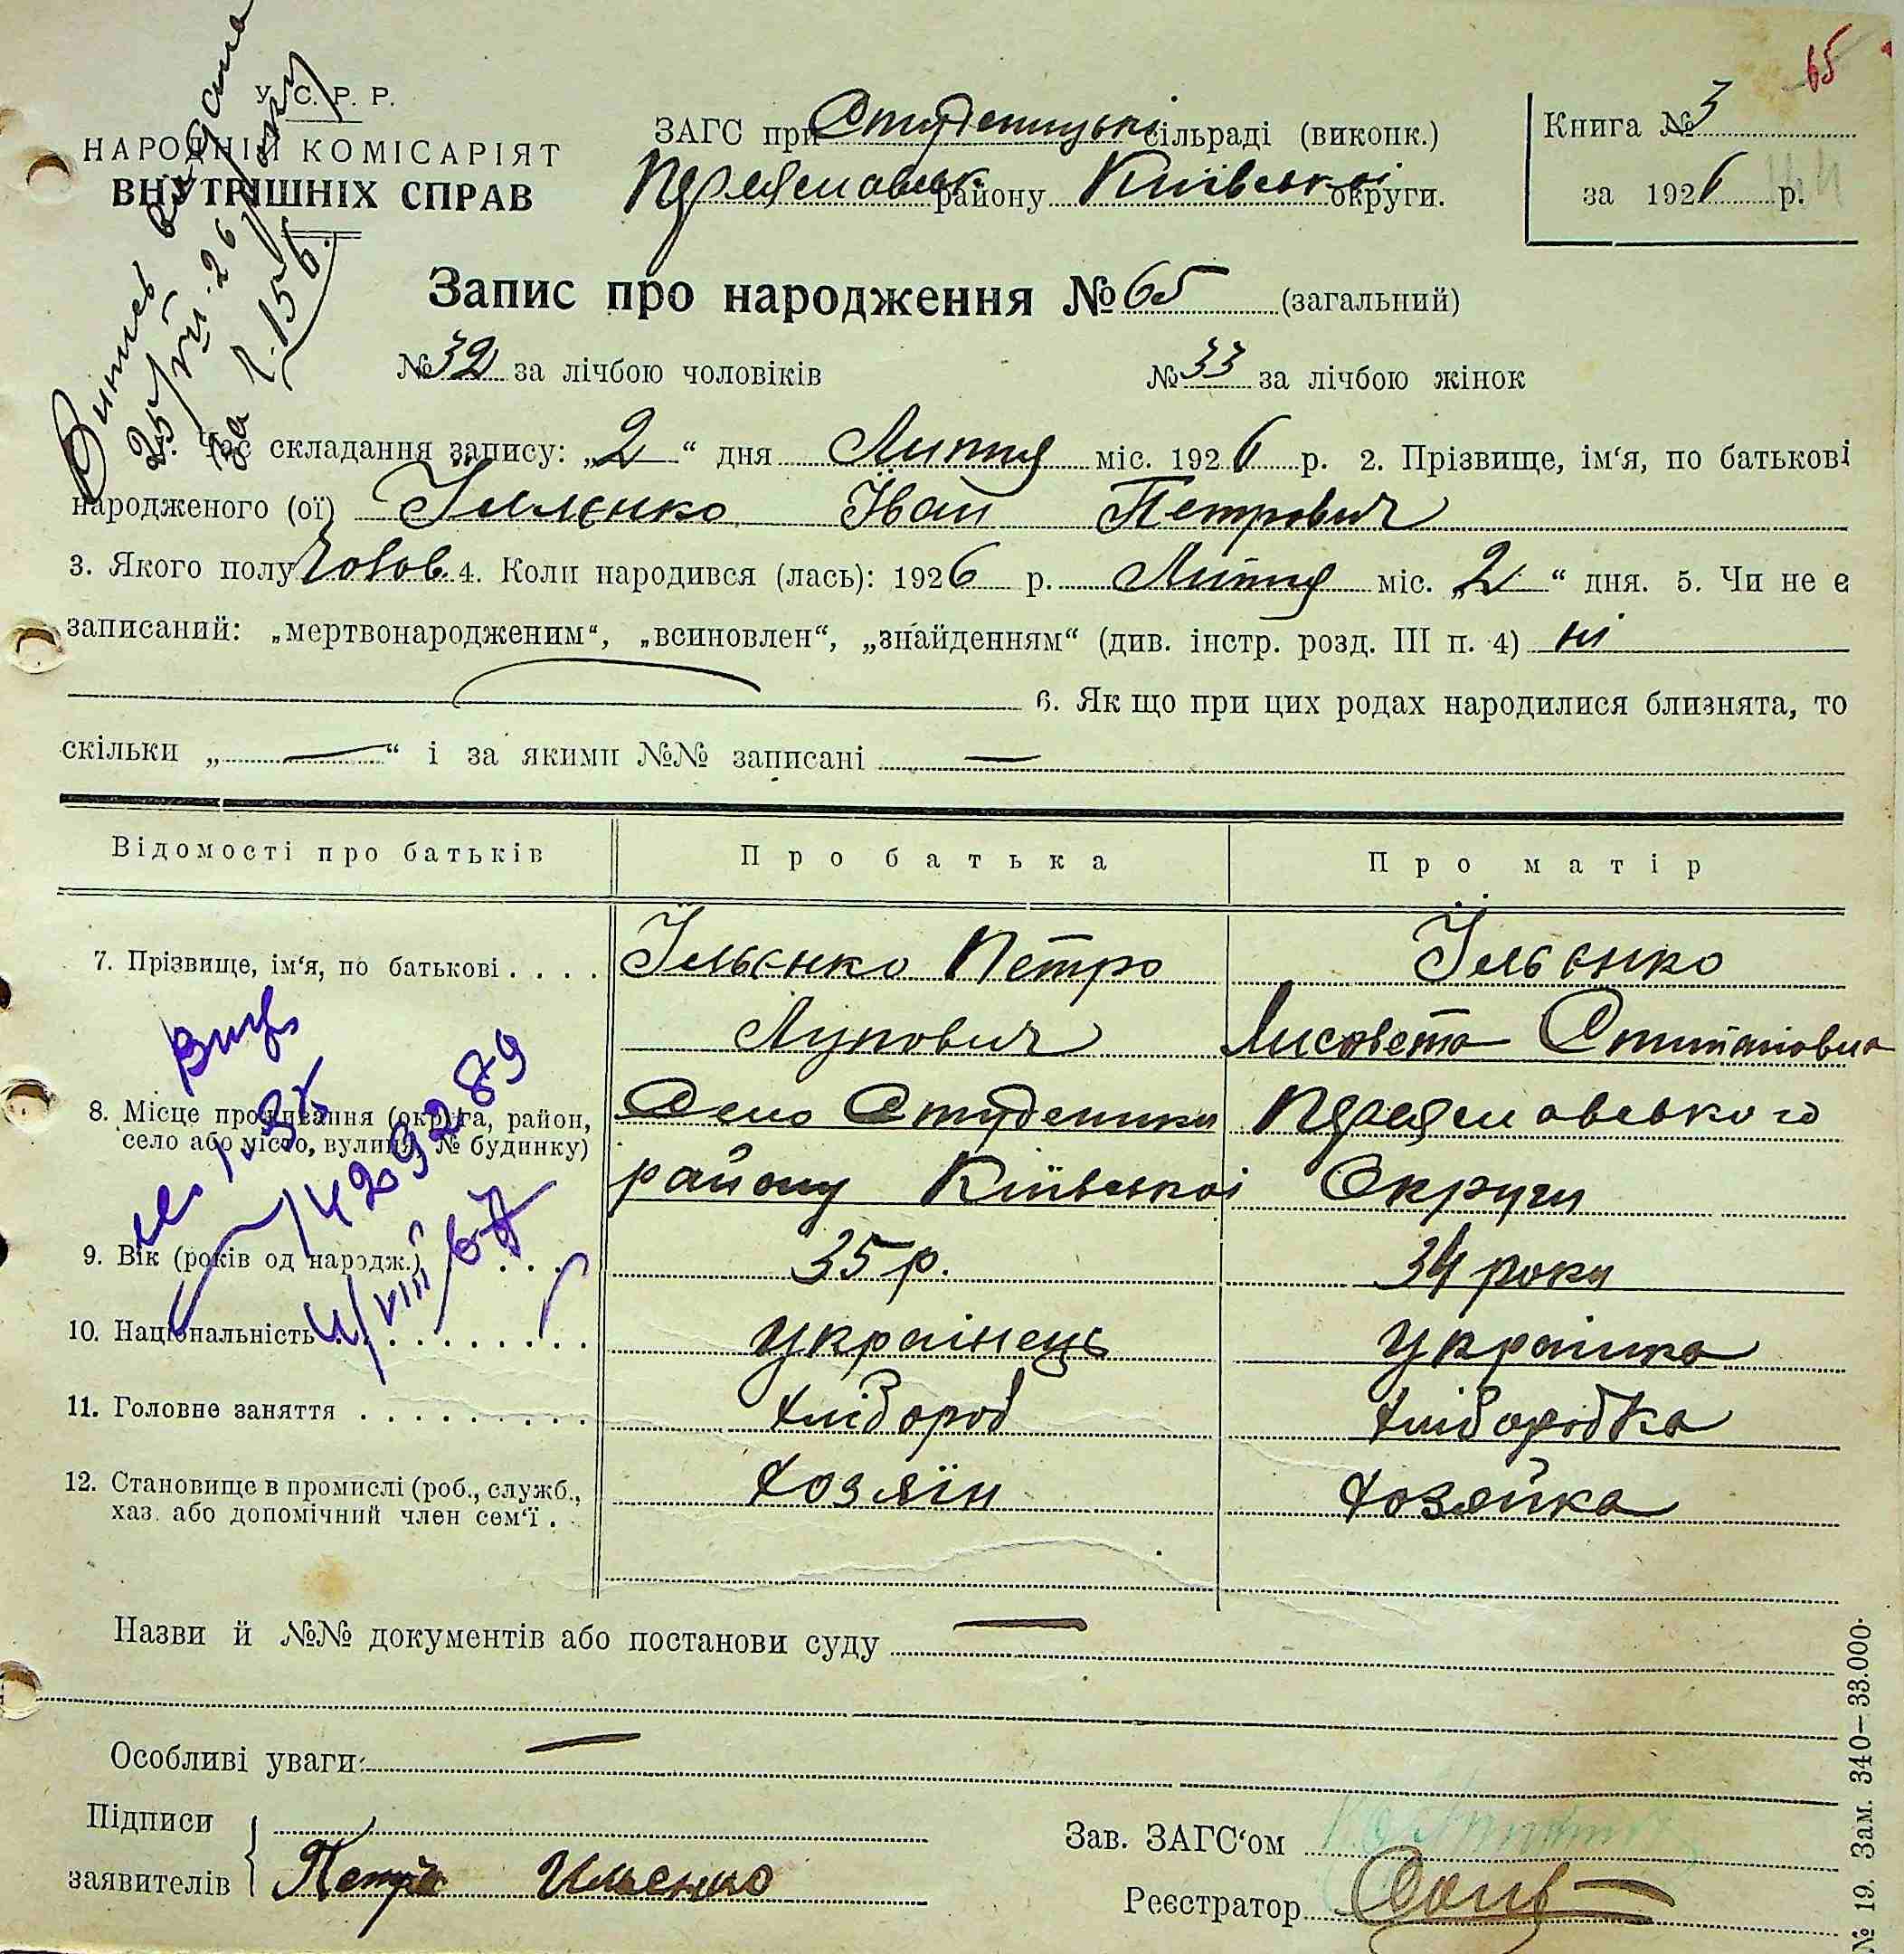 65
У. С. Р. Р.
НАРОДНІЙ КОМІСАРІЯТ
ВНУТРІШНІХ СПРАВ
ЗАГС при Студеницькі сільраді (виконк.)
Переяславськ району Київської округи.
Книга № 3
за 1926 р.
Випись видана
25/VII-26
за № 156
Запис про народження № 65 (загальний)
№ 32 за лічбою чоловіків
№ 33 за лічбою жінок
Час складання запису: „2“ дня Липня міс. 1926 р. 2. Прізвище, ім‘я, по батькові
народженого (ої) Ілленко Іван Петрович
3. Якого полу Чолов. 4. Коли народився (лась): 1926 р. Липня міс. „2“ дня. 5. Чи не є
записаний: „мертвонародженим“, „всиновлен“, „знайденням“ (див. інстр. розд. III п. 4) ні
6. Як що при цих родах народилися близнята, то
скільки „—“ і за якими №№ записані —
Відомості про батьків
Про батька
Про матір
7. Прізвище, ім‘я, по батькові . . . .
Ільєнко Петро
Лупович
Ільєнко
Лисавета Степановна
8. Місце проживання (округа, район,
село або місто, вулиця, № будинку)
Село Студеники Переяславського
району Київської Округи
429289
4/VIII 67
9. Вік (років од народж.) . . .
35 р.
34 роки
10. Національність . . . . . . . . .
Українець
Українка
11. Головне заняття . . . . . . . . .
хлібороб
хліборобка
12. Становище в промислі (роб., служб.,
хаз. або допомічний член сем‘ї . .
хозяїн
хозяйка
Назви й №№ документів або постанови суду —
Особливі уваги: —
Підписи
заявителів
Петро Ильенко
Зав. ЗАГС‘ом
Реєстратор
№ 19. Зам. 340—33.000.